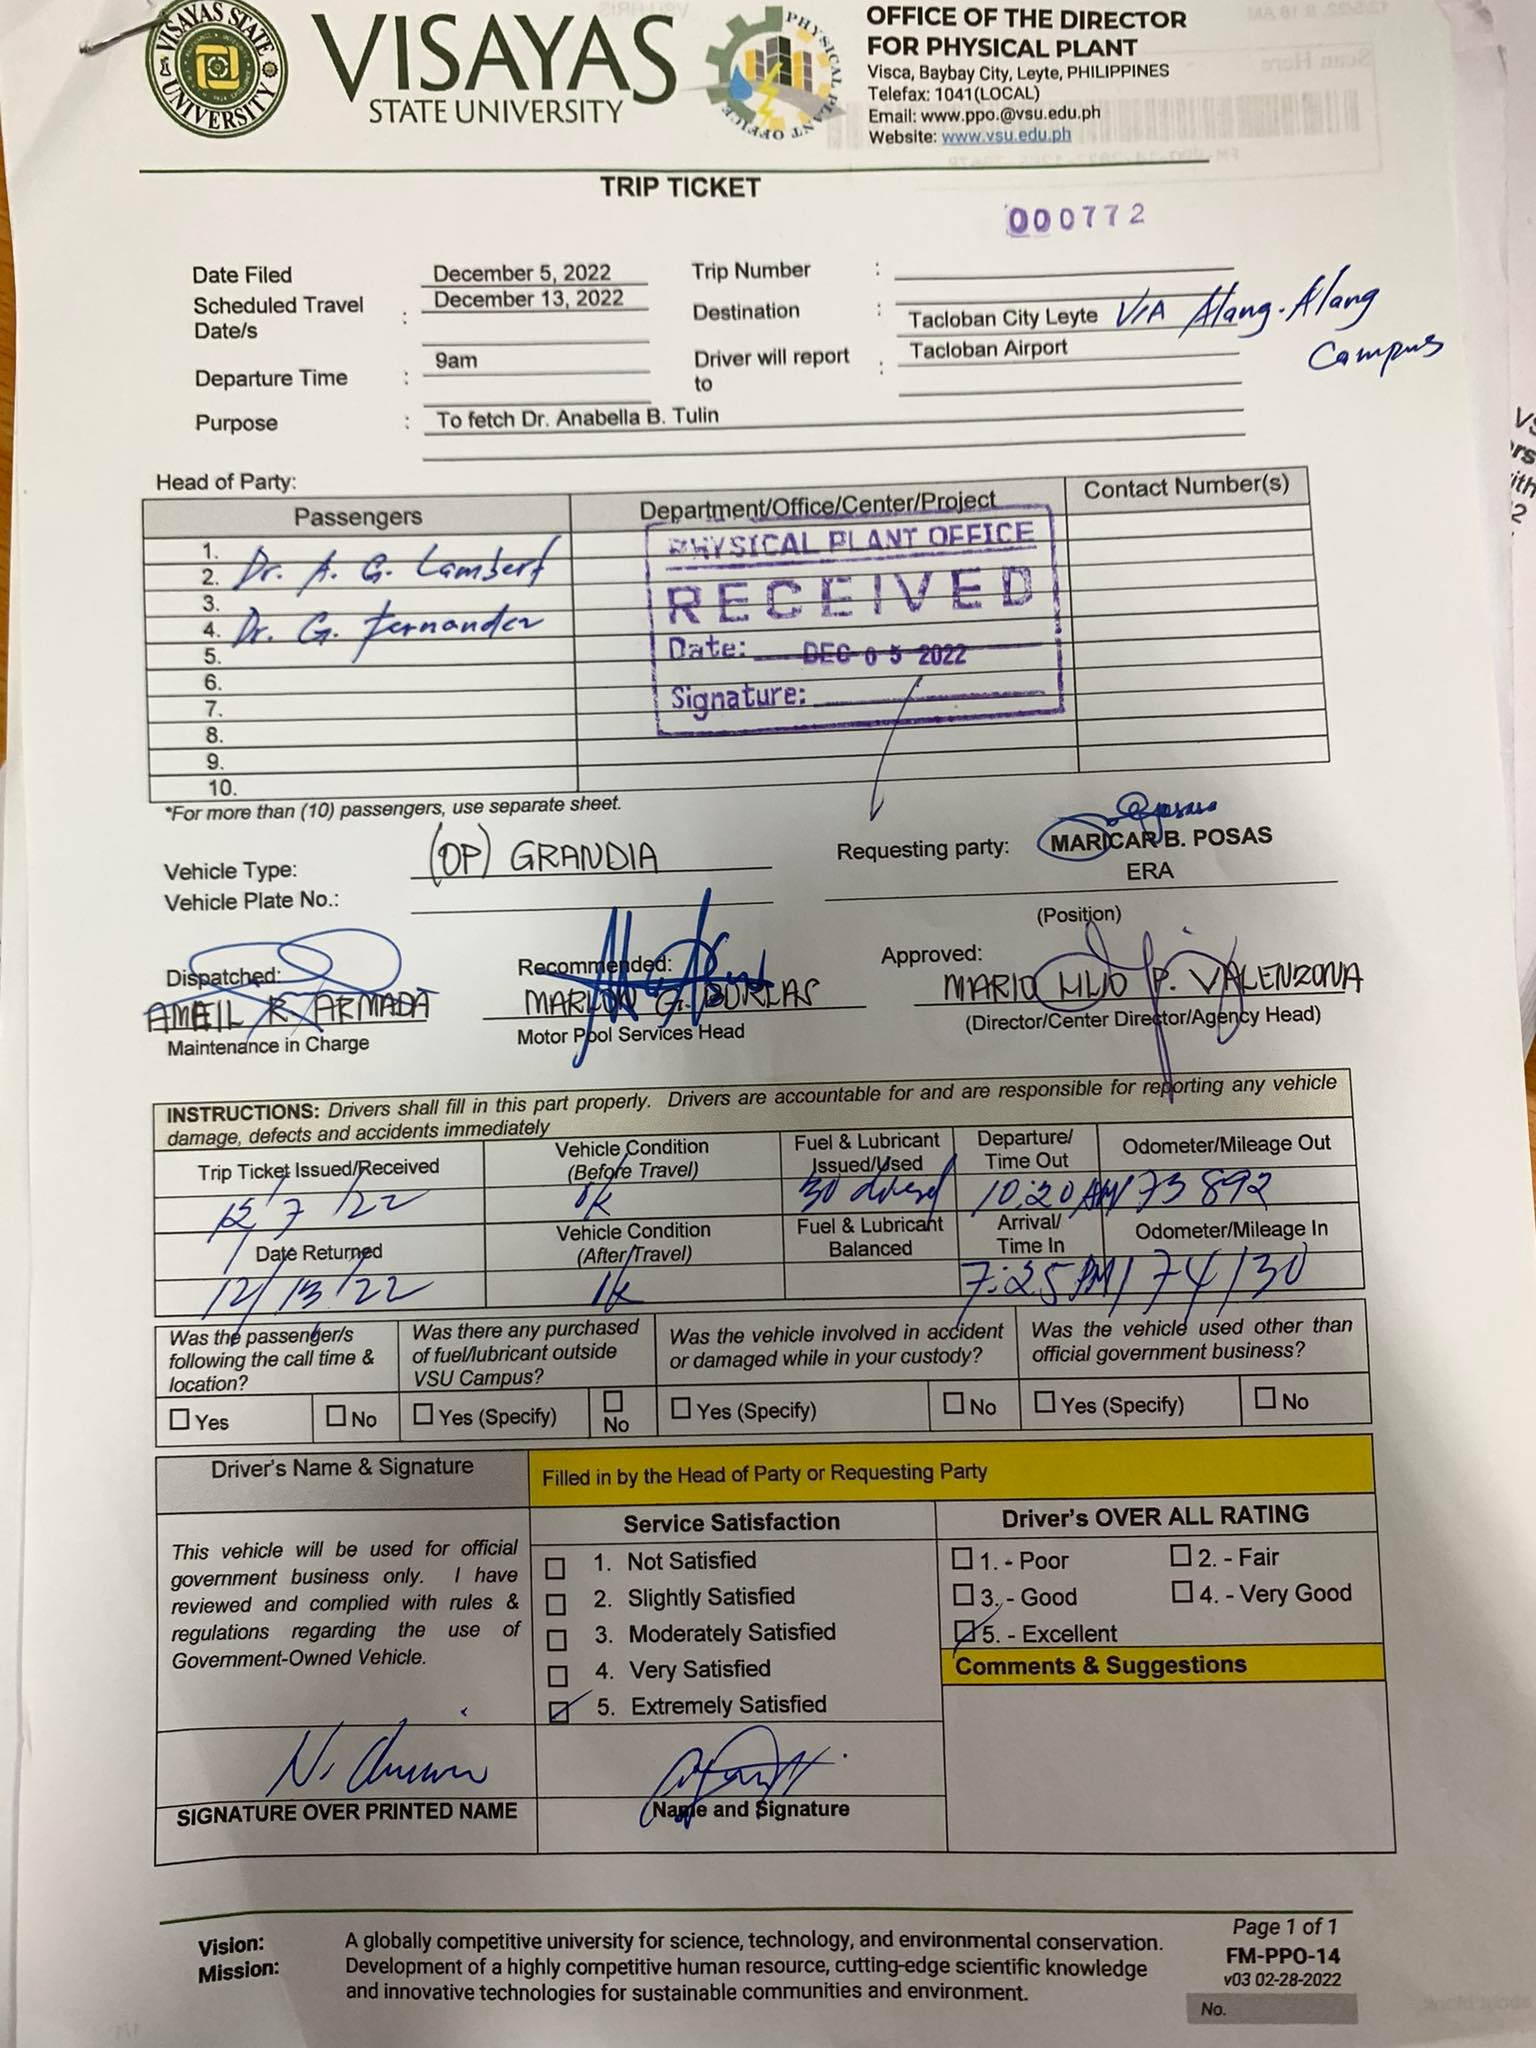 VISAYAS STATE UNIVERSITY
VISAYAS
STATE UNIVERSITY
PHYSICAL PLANT OFFICE
OFFICE OF THE DIRECTOR
FOR PHYSICAL PLANT
Visca, Baybay City, Leyte, PHILIPPINES
Telefax: 1041(LOCAL)
Email: www.ppo.@vsu.edu.ph
Website: www.vsu.edu.ph
TRIP TICKET
000772
Date Filed December 5, 2022 Trip Number :
Scheduled Travel Date/s : December 13, 2022 Destination : Tacloban City Leyte VIA Alang-Alang Campus
Departure Time : 9am Driver will report to : Tacloban Airport
Purpose : To fetch Dr. Anabella B. Tulin
Head of Party:
Passengers Department/Office/Center/Project Contact Number(s)
1.
2. Dr. A. G. Lambert
3.
4. Dr. G. Fernandez
5.
6.
7.
8.
9.
10.
PHYSICAL PLANT OFFICE
RECEIVED
Date: DEC 05 2022
Signature:
*For more than (10) passengers, use separate sheet.
Vehicle Type: (OP) GRANDIA Requesting party: MARICAR B. POSAS
ERA
Vehicle Plate No.:
(Position)
Dispatched: Recommended: Approved:
AMEIL R. ARMADA MARLON G. BURLAS MARIO LILIO P. VALENZONA
Maintenance in Charge Motor Pool Services Head (Director/Center Director/Agency Head)
INSTRUCTIONS: Drivers shall fill in this part properly. Drivers are accountable for and are responsible for reporting any vehicle
damage, defects and accidents immediately
Trip Ticket Issued/Received Vehicle Condition (Before Travel) Fuel & Lubricant Issued/Used Departure/ Time Out Odometer/Mileage Out
12/7/22 ok 30 diesel 10:20 AM 73892
Date Returned Vehicle Condition (After Travel) Fuel & Lubricant Balanced Arrival/ Time In Odometer/Mileage In
12/13/22 ok 7:25 PM 74130
Was the passenger/s following the call time & location? Was there any purchased of fuel/lubricant outside VSU Campus? Was the vehicle involved in accident or damaged while in your custody? Was the vehicle used other than official government business?
Yes No Yes (Specify) No Yes (Specify) No Yes (Specify) No
Driver's Name & Signature Filled in by the Head of Party or Requesting Party
Service Satisfaction Driver's OVER ALL RATING
This vehicle will be used for official
government business only. I have
reviewed and complied with rules &
regulations regarding the use of
Government-Owned Vehicle.
1. Not Satisfied
2. Slightly Satisfied
3. Moderately Satisfied
4. Very Satisfied
5. Extremely Satisfied
1. - Poor 2. - Fair
3. - Good 4. - Very Good
5. - Excellent
Comments & Suggestions
SIGNATURE OVER PRINTED NAME Name and Signature
Vision: A globally competitive university for science, technology, and environmental conservation.
Mission: Development of a highly competitive human resource, cutting-edge scientific knowledge
and innovative technologies for sustainable communities and environment.
Page 1 of 1
FM-PPO-14
v03 02-28-2022
No.